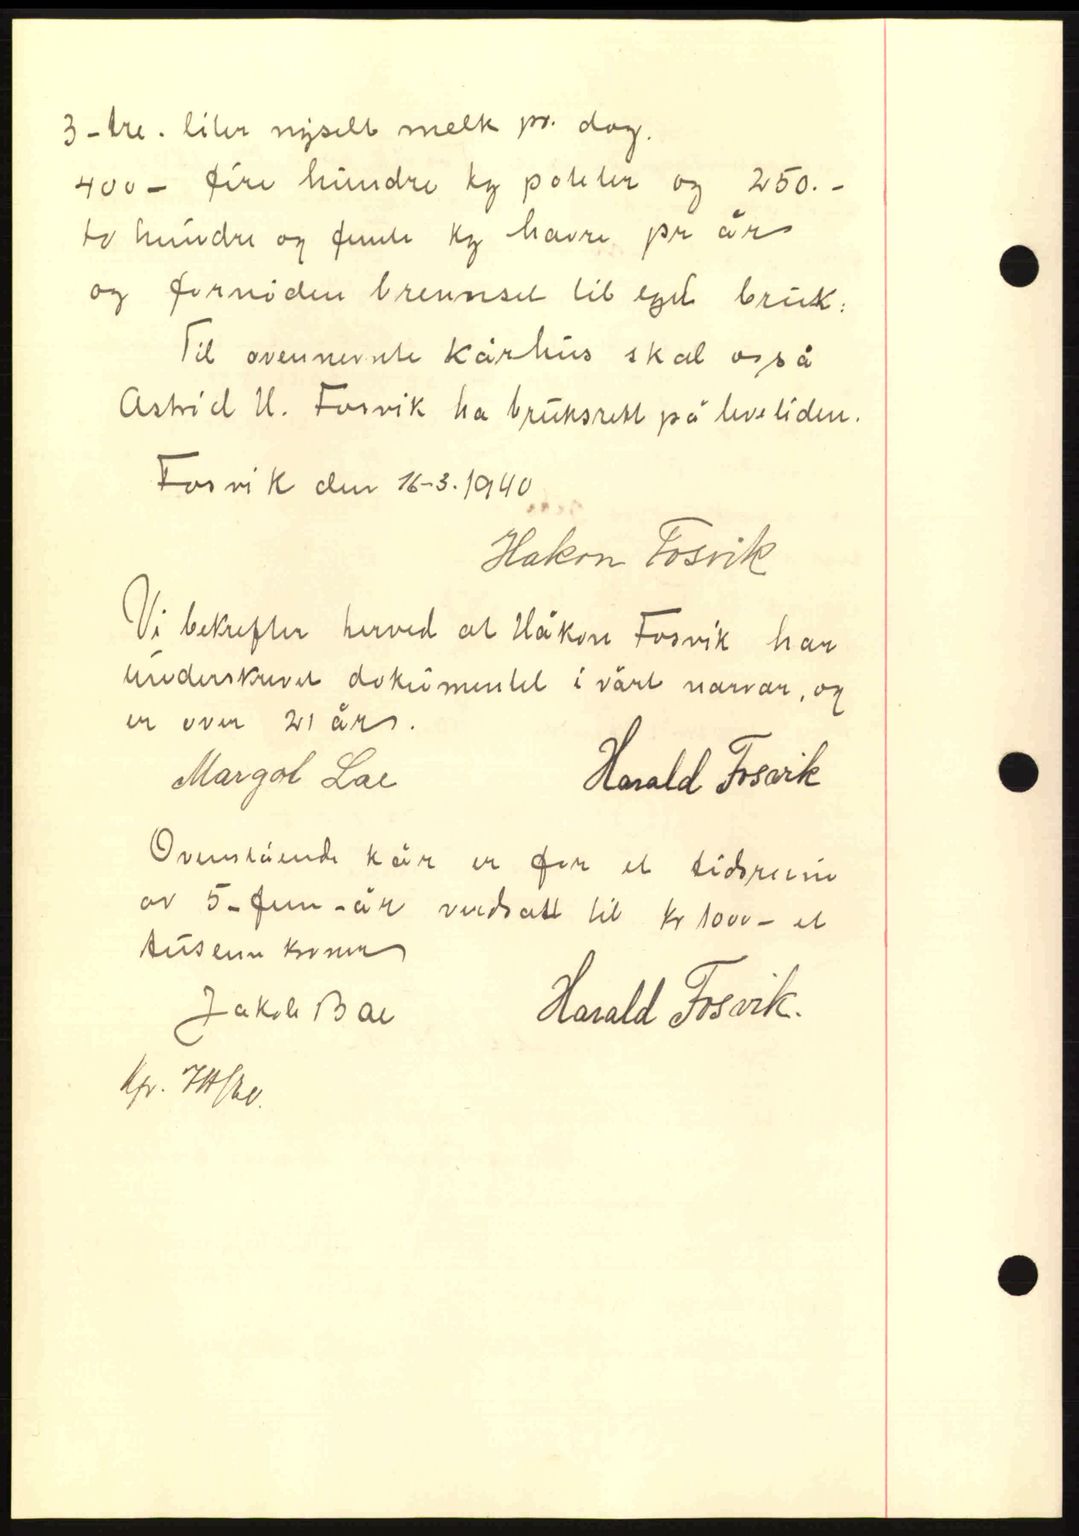 3-tre. liter nysilt melk pr. dag.
400- fire hundre kg poteter og 250.-
to hundre og femti kg havre pr år
og fornøden brennsel til eget bruk.
Til ovennevnte kårhus skal også
Astrid H. Fosvik ha bruksrett på levetiden.
Fosvik den 16-3.1940
Hakon Fosvik
Vi bekrefter herved at Håkon Fosvik har
underskrevet dokumentet i vårt nærvær, og
er over 21 år.
Margot Lae Harald Fosvik
Ovenstående kår er for et tidsrum
av 5-fem-år verdsatt til kr 1000- et
tusenn kroner
Jakob Bae Harald Fosvik.